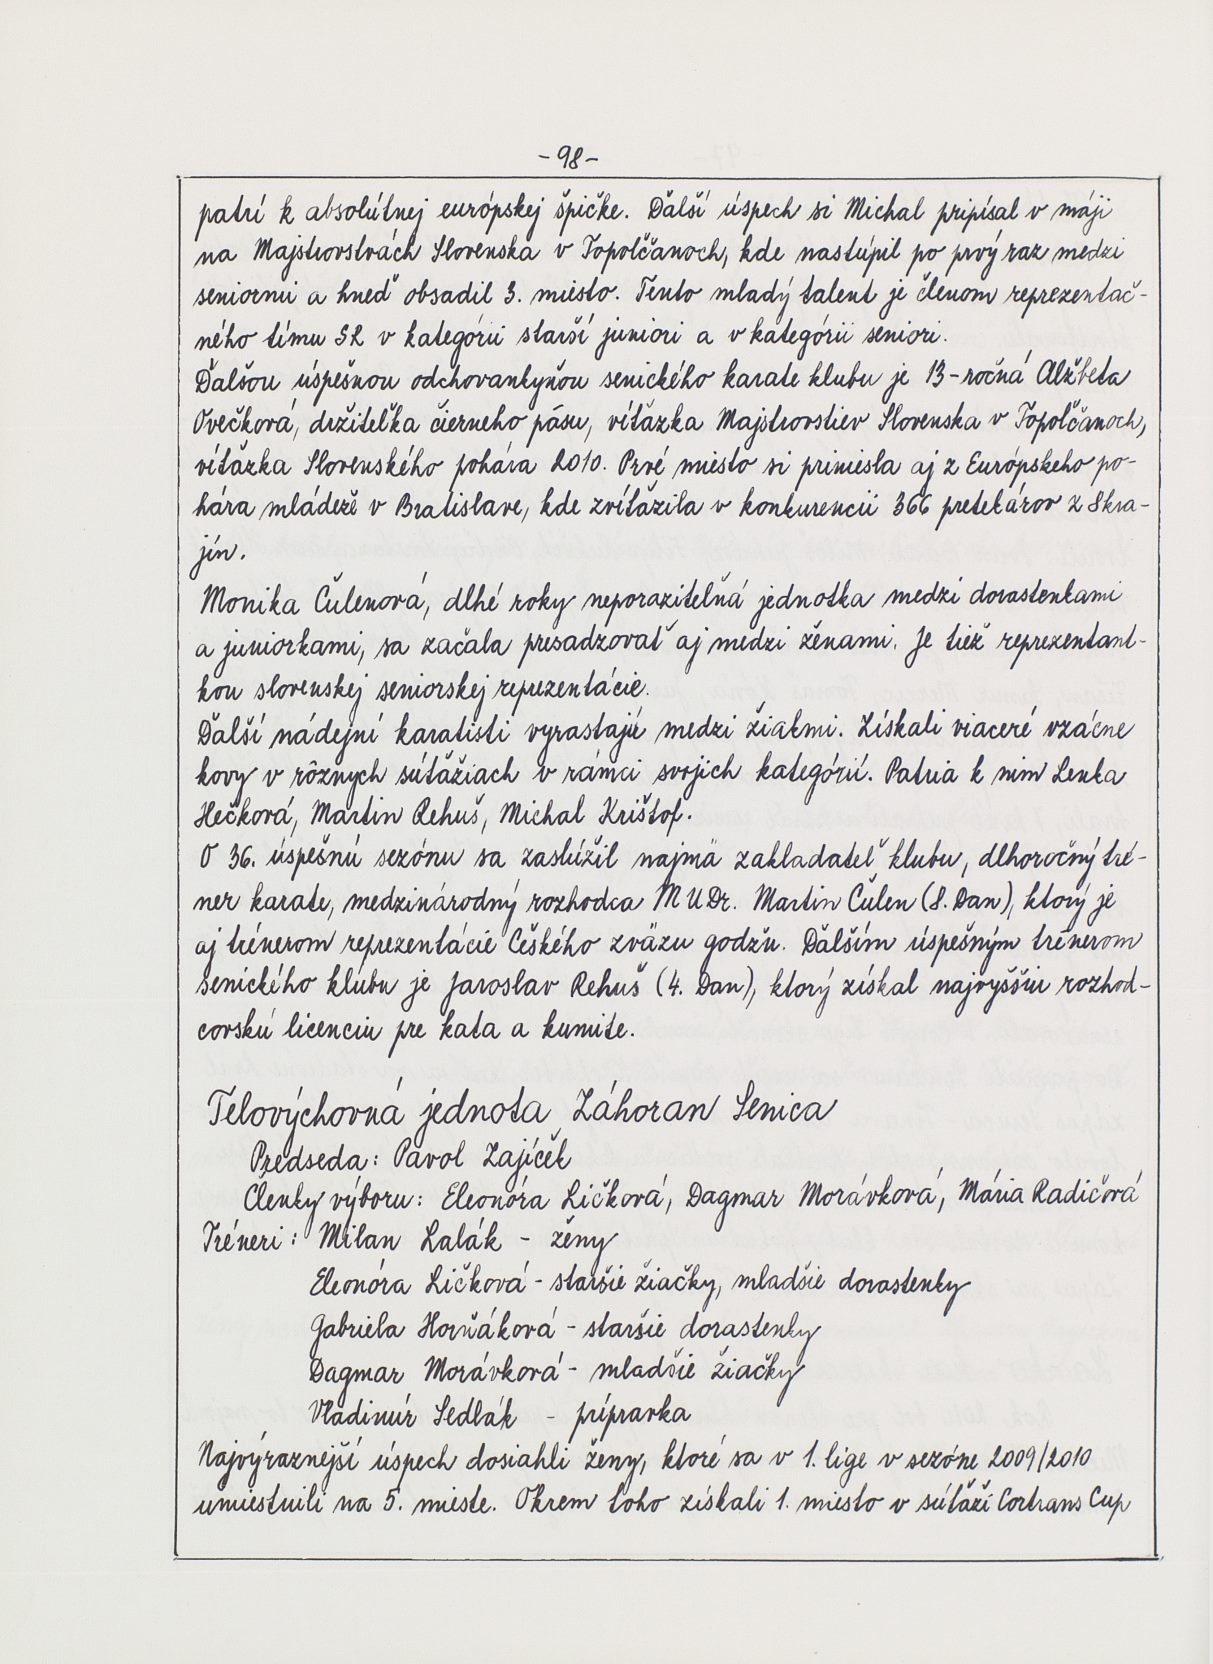 -98-
patrí k absolútnej európskej špičke. Ďalší úspech si Michal pripísal v máji
na Majstrovstvách Slovenska v Topoľčanoch, kde nastúpil po prvý raz medzi
seniormi a hneď obsadil 3. miesto. Tento mladý talent je členom reprezentač-
ného tímu SR v kategórii starší juniori a v kategórii seniori.
Ďalšou úspešnou odchovankyňou senického karate klubu je 13-ročná Alžbeta
Ovečková, držiteľka čierneho pásu, víťazka Majstrovstiev Slovenska v Topoľčanoch,
víťazka Slovenského pohára 2010. Prvé miesto si priniesla aj z Európskeho po-
hára mládeže v Bratislave, kde zvíťazila v konkurencii 366 pretekárov z 8 kra-
jín.
Monika Čulenová, dlhé roky neporaziteľná jednotka medzi dorastenkami
a juniorkami, sa začala presadzovať aj medzi ženami. Je tiež reprezentant-
kou slovenskej seniorskej reprezentácie.
Ďalší nádejní karatisti vyrastajú medzi žiakmi. Získali viaceré vzácne
kovy v rôznych súťažiach v rámci svojich kategórií. Patria k nim Lenka
Hečková, Martin Rehuš, Michal Krištof.
O 36. úspešnú sezónu sa zaslúžil najmä zakladateľ klubu, dlhoročný tré-
ner karate, medzinárodný rozhodca MUDr. Martin Čulen (8. Dan), ktorý je
aj trénerom reprezentácie Českého zväzu godžu. Ďalším úspešným trénerom
senického klubu je Jaroslav Rehuš (4. Dan), ktorý získal najvyššiu rozhod-
covskú licenciu pre kata a kumite.
Telovýchovná jednota Záhoran Senica
Predseda: Pavol Zajíček
Členky výboru: Eleonóra Ličková, Dagmar Morávková, Mária Radičová
Tréneri: Milan Lalák - ženy
Eleonóra Ličková - staršie žiačky, mladšie dorastenky
Gabriela Horňáková - staršie dorastenky
Dagmar Morávková - mladšie žiačky
Vladimír Sedlák - prípravka
Najvýraznejší úspech dosiahli ženy, ktoré sa v 1. lige v sezóne 2009/2010
umiestnili na 5. mieste. Okrem toho získali 1. miesto v súťaži Cortrans Cup